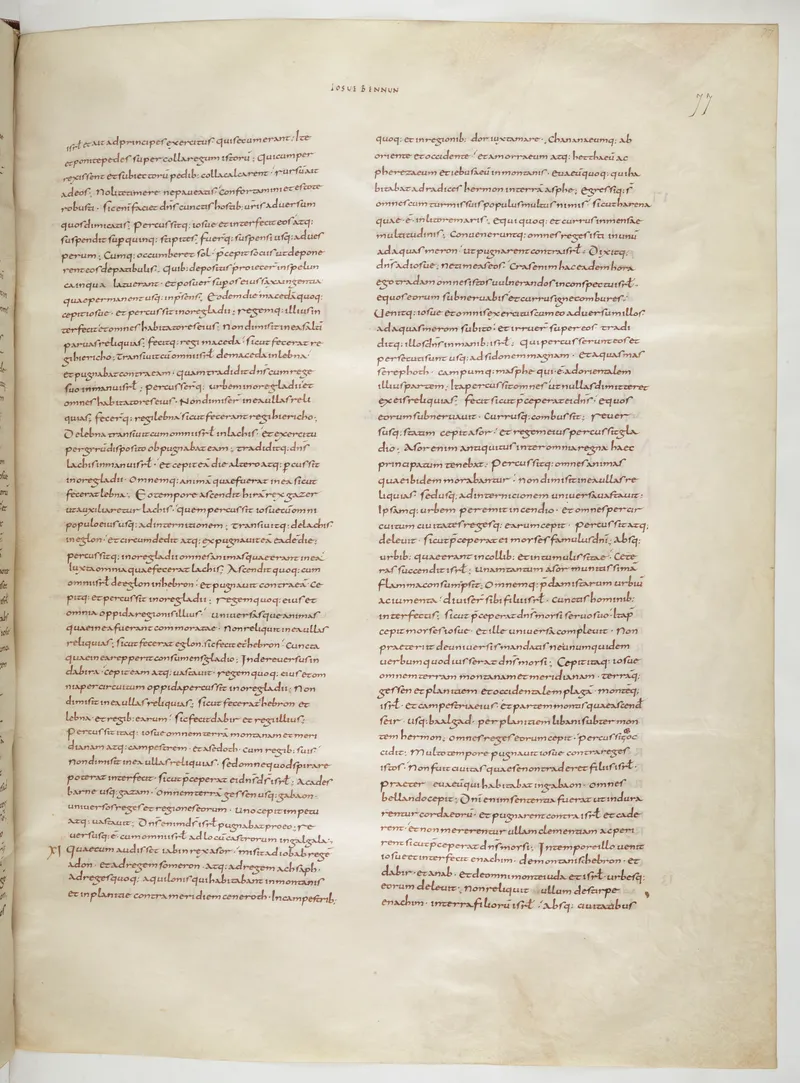 IOSUE BENNUN
77
isrł et ait ad principes exercitus qui secum erant; Ite
et ponite pedes super colla regum istorū; Qui cum per
rexissent et subiectorū pedib; colla calcarent · rursū ait
ad eos; Nolite timere nec paueatis · confortamini et estote
robusti · sic enī faciet dn̄s cunctis hostib; uris aduersum
quos dimicatis; Percussitq; iosue et interfecit eos atq;
suspendit sup quinq; stipites; fuerq; suspensi usq; ad ues
perum; Cumq; occumberet sol · p̄cepit sociis ut depone
rent eos de patibulis; Quib; depositis proiecer̄ in spelun
ca in qua latuerant · et posuer̄ sup os eius saxa ingentia
quae permanent usq; in p̄sens; Eodem die macedā quoq;
cepit iosue · et percussit in ore gladii; regemq; illius in
terfecit et omnes habitatores eius; Non dimisit in ea saltē
paruas reliquias; fecitq; regi maceda · sicut fecerat re
gi hiericho; Transiuit cū omni isrł · de maceda in lebna ·
et pugnabat contra eam · quam tradidit dn̄s cum rege
suo in manu isrł; percusserq; urbem in ore gladii et
omnes habitatores eius · Non dimiser̄ in ea ullas reli
quias; fecerq; regi lebna sicut fecerant regi hiericho;
De lebna transiuit cum omni isrł in lachis · et exercitu
per gyrū disposito obpugnabat eam; tradiditq; dn̄s
lachis in manu isrł · et cepit eā die altero atq; pcussit
in ore gladii · Omnemq; animā quae fuerat in ea sicut
fecerat lebna; Eo tempore ascendit hiram rex gazer
ut auxiliaretur lachis · quem percussit iosue cū omni
populo eius usq; ad internitionem; transiuitq; de lachis
in eglon · et circumdedit atq; expugnauit eā eadē die;
percussitq; in ore gladii omnes animas quae erant in eā
Iuxta omnia quae fecerat lachis; Ascendit quoq; cum
omni isrł de eglon in hebron · et pugnauit contra eā · Ce
pitq; et percussit in ore gladii; regemq; eius et
omnia oppida regionis illius · uniuersasque animas
quae in ea fuerant commoratae · Non reliquit in ea ullas
reliquias; sicut fecerat eglon · sic fecit et hebron · Cuncta
quae in ea repperit consumens gladio; Inde reuersus in
dabir a · cepit eam atq; uastauit · regemq; eius et om
nia per circuitum oppida percussit in ore gladii; Non
dimisit in ea ullas reliquias; sicut fecerat hebron et
lebna · et regib; earum · sic fecit dabir et regi illius;
Percussit itaq; iosue omnem terrā montanam et meri
dianam atq; campestrem · et asedoth · cum regib; suis ·
Non dimisit in ea ullas reliquias; sed omne quod spirare
poterat interfecit · sicut p̄ceperat ei dn̄s ds̄ isrł; A cades
barne usq; gazam · Omnem terrā gessen usq; gabaon ·
uniuersos reges et regiones eorum · uno cepit impetu
atq; uastauit; Dn̄s enim ds̄ isrł pugnabat pro eo; re
uersusq; ē cum omni isrł ad locū castrorum in galgala;
XI Quae cum audisset iabin rex asor · misit ad iobab regē
adon · et ad regem someron · atq; ad regem achsaph ·
Ad reges quoq; aquilonis qui habitabant in montanis
et in planitie contra meridiem ceneroth · In campestrib;
quoq; et in regionib; dor iuxta mare · Chananaeumq; ab
oriente et occidente · et amorraeum atq; hettheū ac
pherezaeum et iebusaeū in montanis · euaeū quoq; qui ha
bitabat ad radices hermon in terra masphe; egressiq; s̄
omnes cum turmis suis populus multus nimis · sicut harena
quae ē in litore maris · equi quoq; et currus immensae
multitudinis; Conueneruntq; omnes reges isti in unū
ad aquas merom · ut pugnarent contra isrł; Dixitq;
dn̄s ad iosue; ne timeas eos; Cras enim hac eadem hora
ego tradam omnes istos uulnerandos in conspectu isrł ·
equos eorum subneruabis et currus igne combures;
Uenitq; iosue et omnis exercitus cum eo aduersum illos
ad aquas merom subito · et irruer̄ super eos tradi
ditq; illos dn̄s in manib; isrł; qui percusserunt eos et
persecuti sunt usq; ad sidonem magnam · et aquas mas
serephoth · campumq; masphe qui ē ad orientalem
illius partem; Ita percussit omnes ut nullas dimitteret
ex eis reliquias; fecit sicut p̄ceperat ei dn̄s · equos
eorum subneruauit · currusq; combussit; reuer
susq; statim cepit asor · et regem eius percussit gla
dio; Asor enim antiquitus inter omnia regna haec
principatum tenebat; Percussitq; omnes animas
quae ibidem morabantur · Non dimisit in ea ullas re
liquias; sed usq; ad internicionem uniuersa uastauit ·
Ipsamq; urbem peremit incendio · et omnes per cir
cuitum ciuitates regesq; earum cepit · percussit atq;
deleuit · sicut p̄ceperat ei moyses famulus dn̄i; Absq;
urbib; quae erant in collib; et in tumulis sitae · Cete
ras succendit isrł; Unam tantum asor munitissimā
flamma consūpsit; Omnemq; p̄dam istarum urbiū
ac iumenta · diuiser̄ sibi filii isrł · cunctis hominib;
interfectis; sicut p̄ceperat dn̄s moysi seruo suo · Ita p̄
cepit moyses iosue · et ille uniuersa compleuit · Non
praeteriit de uniuersis mandatis ne unum quidem
uerbum quod iusserat dn̄s moysi; Cepit itaq; iosue
omnem terram montanam et meridianam · terrāq;
gessen et planitiem et occidentalem plagā · montēq;
isrł · et campestria eius · et partem montis quae ascendit
seir · usq; baalgad · per planitiem libani subter mon
tem hermon; omnes reges eorum cepit · percussit et oc
cidit; Multo tempore pugnauit iosue contra reges
istos · Non fuit ciuitas quae se non traderet filiis isrł ·
praeter euaeū qui habitabat in gabaon · omnes
bellando cepit; Dn̄i enim sententia fuerat ut indura
rentur corda eorū · et pugnarent contra isrł et cade
rent · et non mererentur ullam clementiam ac peri
rent sicut p̄ceperat dn̄s moysi; In tempore illo uenit
iosue et interfecit enachim · de montanis hebron · et
dabir · et anab · et de omni monte iuda et isrł · urbesq;
eorum deleuit; Non reliquit ullum de stirpe
enachim · in terra filiorū isrł · Absq; ciuitatibus